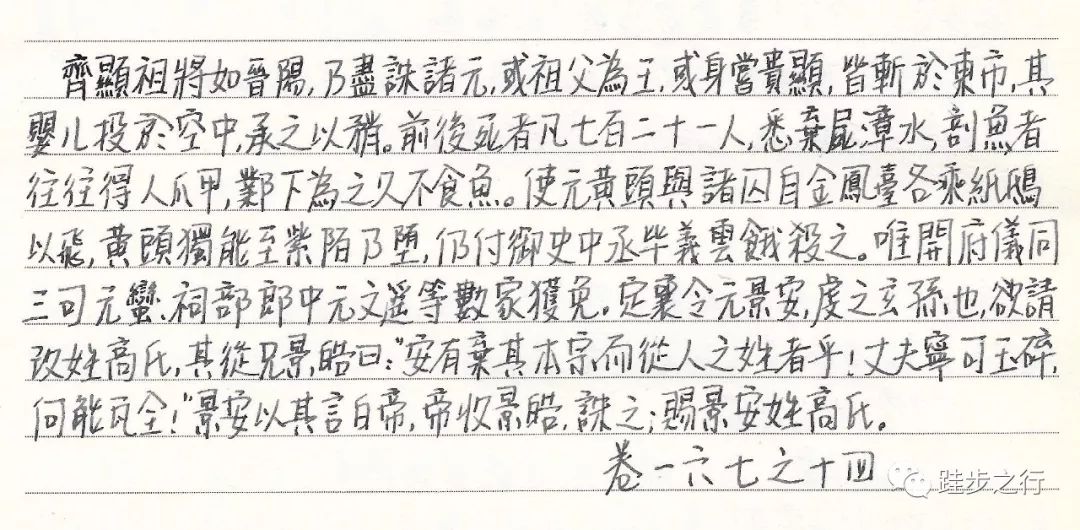 齊顯祖將如晉陽,乃盡誅諸元,或祖父為王,或身嘗貴顯,皆斬於東市,其
嬰儿投於空中,承之以矟。前後死者凡七百二十一人,悉棄屍漳水,剖魚者
往往得人爪甲,鄴下為之久不食魚。使元黃頭與諸囚自金鳳臺各乘紙鴟
以飛,黃頭獨能至紫陌乃墮,仍付御史中丞毕義雲餓殺之。唯開府儀同
三司元蠻、祠部郎中元文遥等數家獲免。定襄令元景安,虔之玄孫也,欲請
改姓高氏,其從兄景皓曰:"安有棄其本宗而從人之姓者乎!丈夫寧可玉碎,
何能瓦全!"景安以其言白帝,帝收景皓,誅之;賜景安姓高氏。
卷一六七之十四
跬步之行